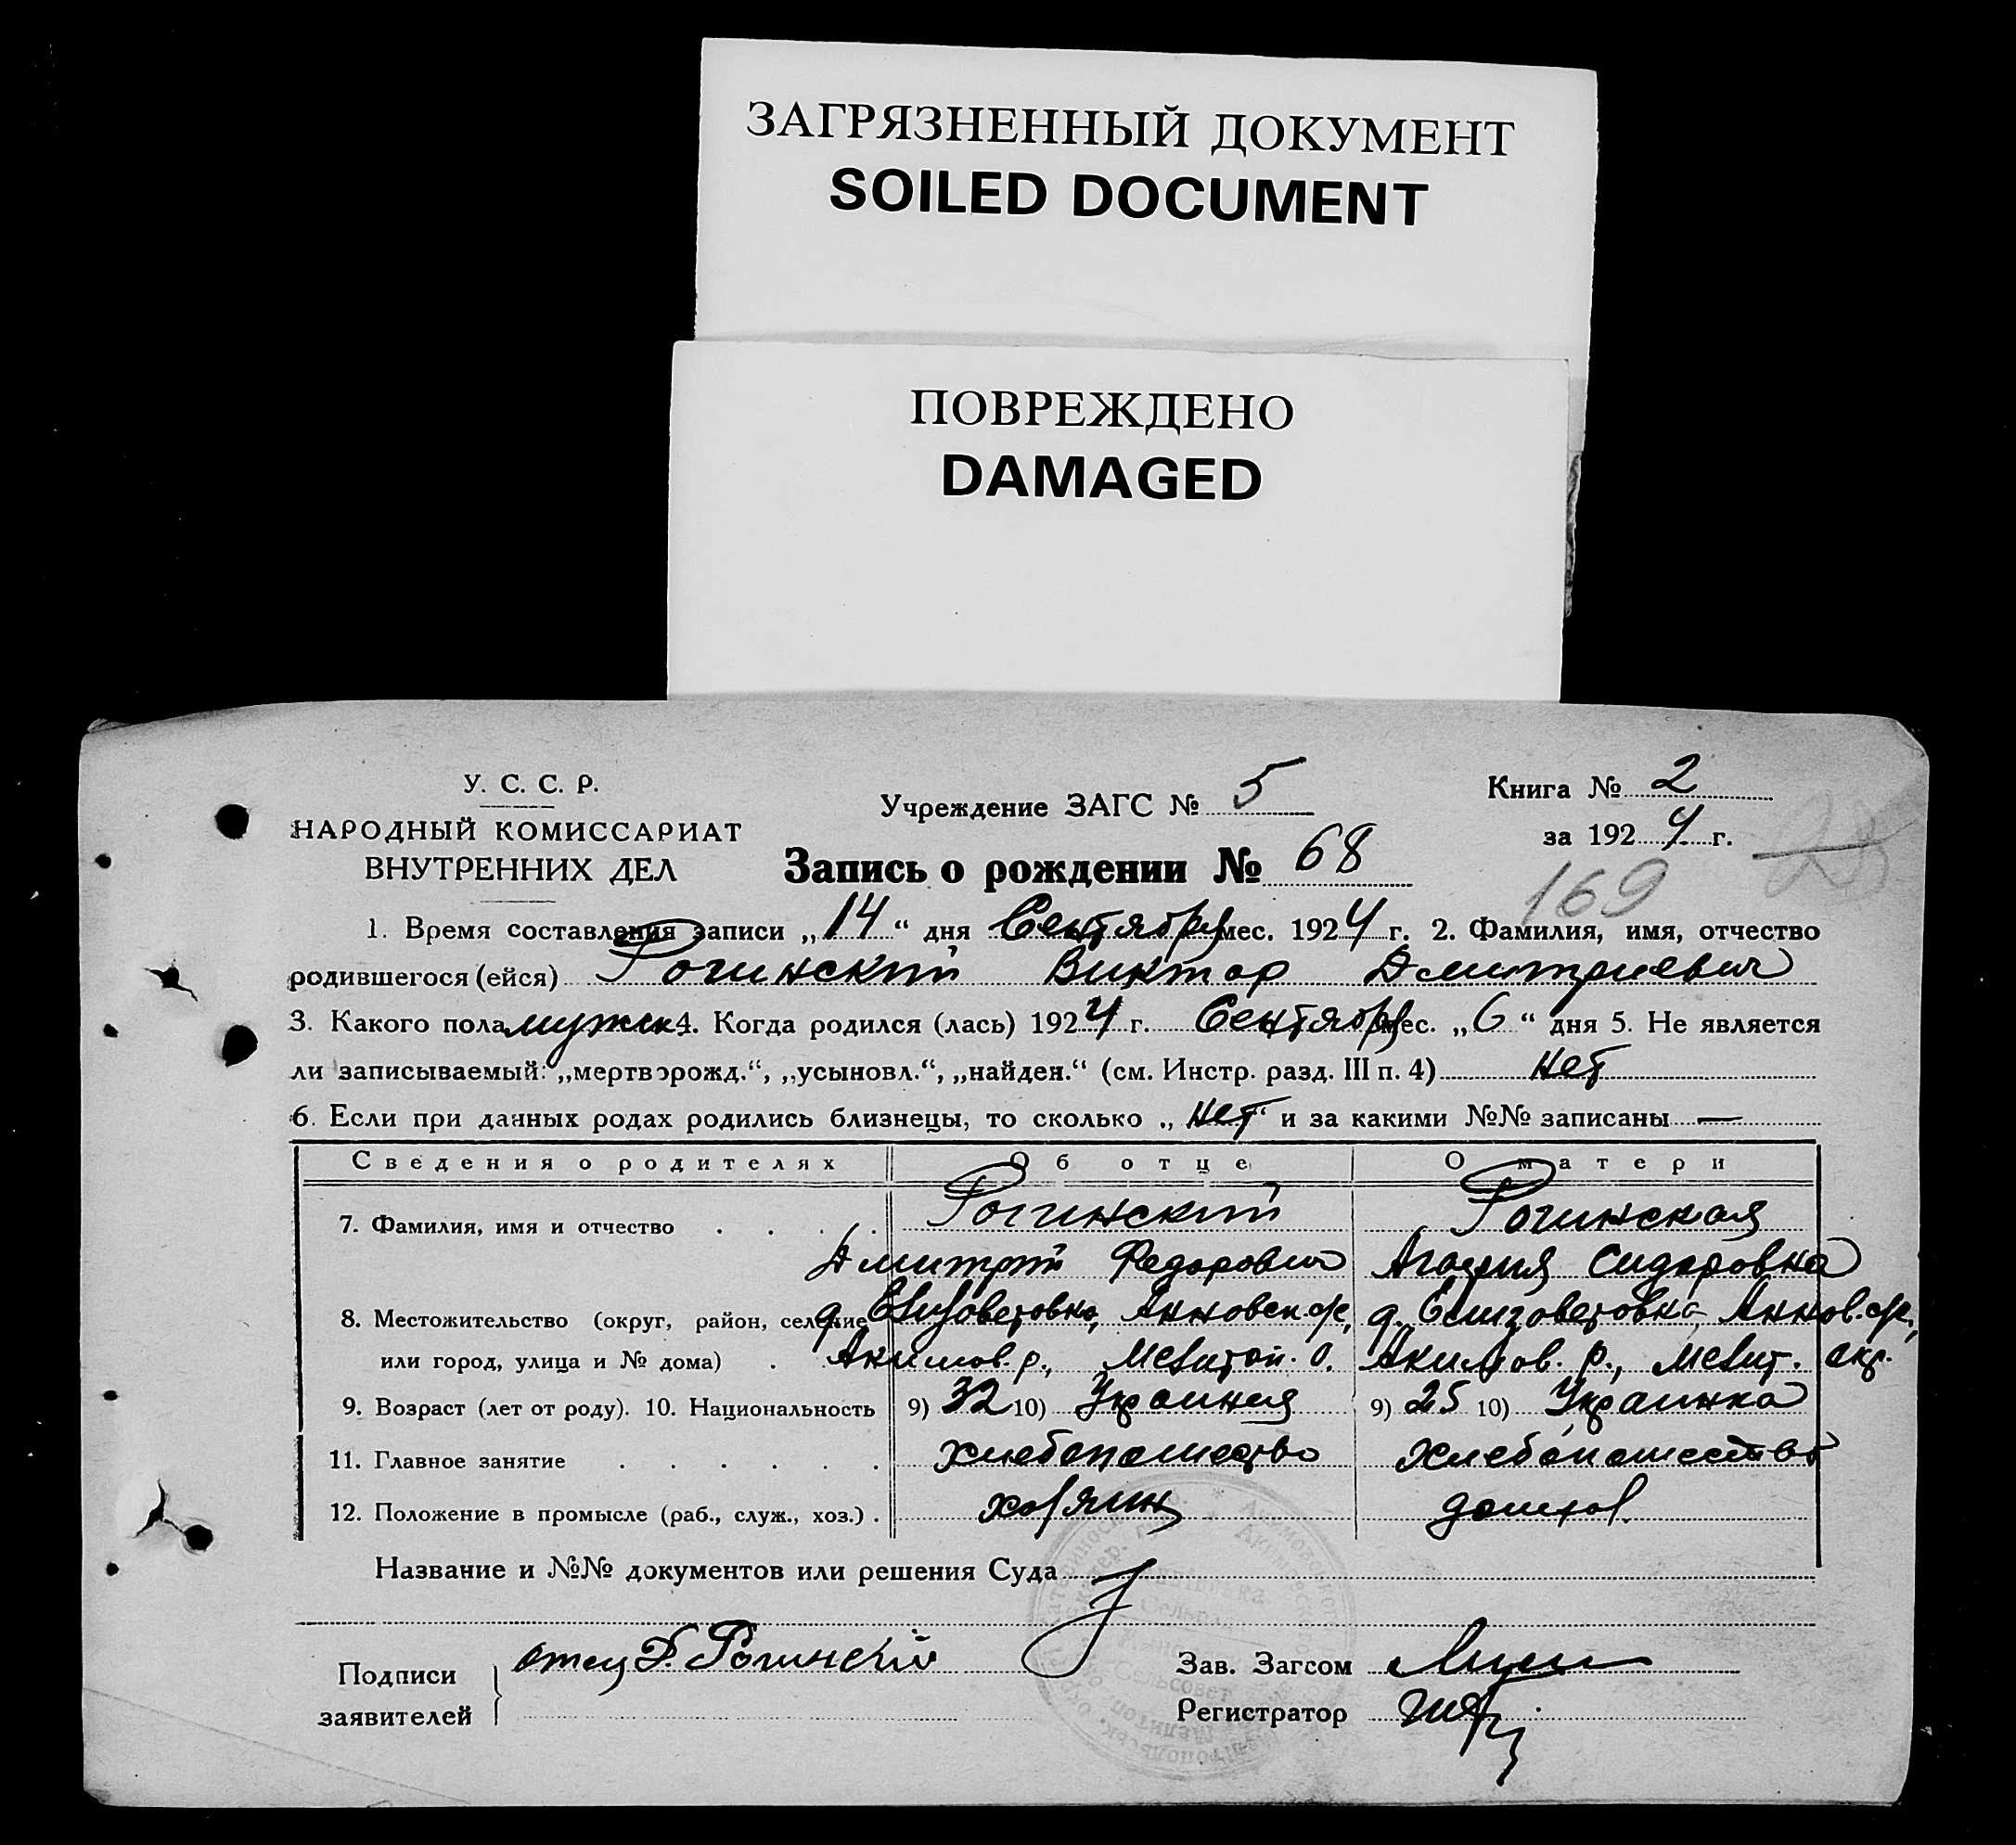 ЗАГРЯЗНЕННЫЙ ДОКУМЕНТ
SOILED DOCUMENT
ПОВРЕЖДЕНО
DAMAGED
У. С. С. Р.
НАРОДНЫЙ КОМИССАРИАТ
ВНУТРЕННИХ ДЕЛ
Учреждение ЗАГС № 5
Книга № 2
за 1924 г.
Запись о рождении № 68
169
1. Время составления записи „14“ дня Сентября мес. 1924 г. 2. Фамилия, имя, отчество
родившегося (ейся) Рогинский Виктор Дмитриевич
3. Какого пола мужск 4. Когда родился (лась) 1924 г. Сентября мес. „6“ дня 5. Не является
ли записываемый: „мертворожд.“, „усыновл.“, „найден.“ (см. Инстр. разд. III п. 4) нет
6. Если при данных родах родились близнецы, то сколько „нет“ и за какими №№ записаны —
Сведения о родителях Об отце О матери
7. Фамилия, имя и отчество Рогинский Рогинская
Дмитрий Федорович Агафия Сидоровна
8. Местожительство (округ, район, селение д. Елизоветовка, Анновск. с/с, д. Елизоветовка, Аннов. с/с,
или город, улица и № дома) Акимов. р., Мелитоп. о. Акимов. р., Мелит. окр.
9. Возраст (лет от роду). 10. Национальность 9) 32 10) Украинец 9) 25 10) Украинка
11. Главное занятие хлебопашество хлебопашество
12. Положение в промысле (раб., служ., хоз.) хозяин домхоз.
Название и №№ документов или решения Суда
Подписи
заявителей
отец Д. Рогинский
Зав. Загсом
Регистратор